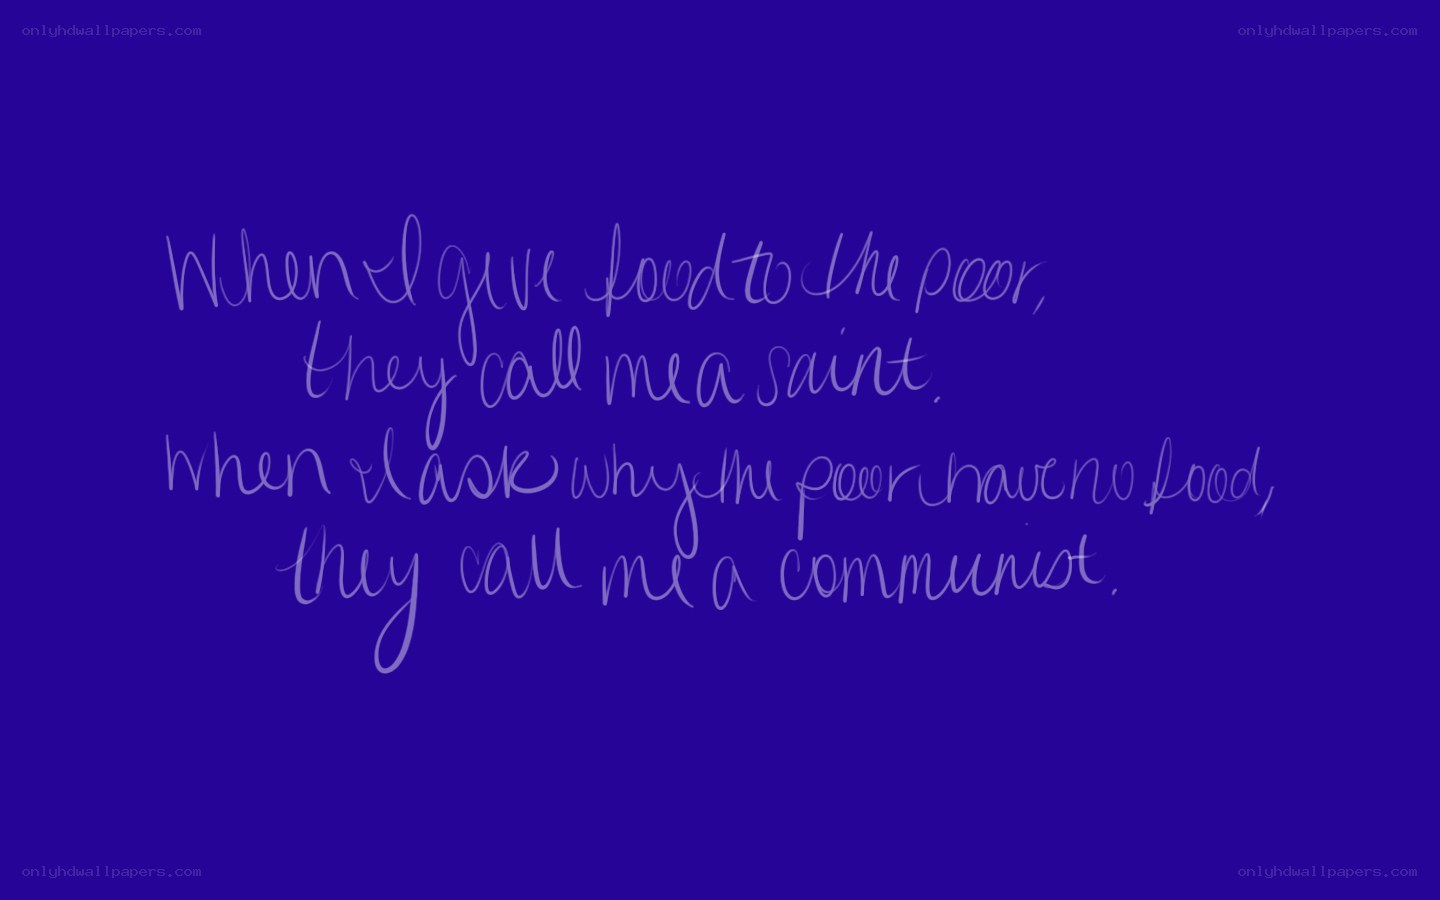 onlyhdwallpapers.com onlyhdwallpapers.com
When I give food to the poor,
they call me a saint.
When I ask why the poor have no food,
they call me a communist.
onlyhdwallpapers.com onlyhdwallpapers.com